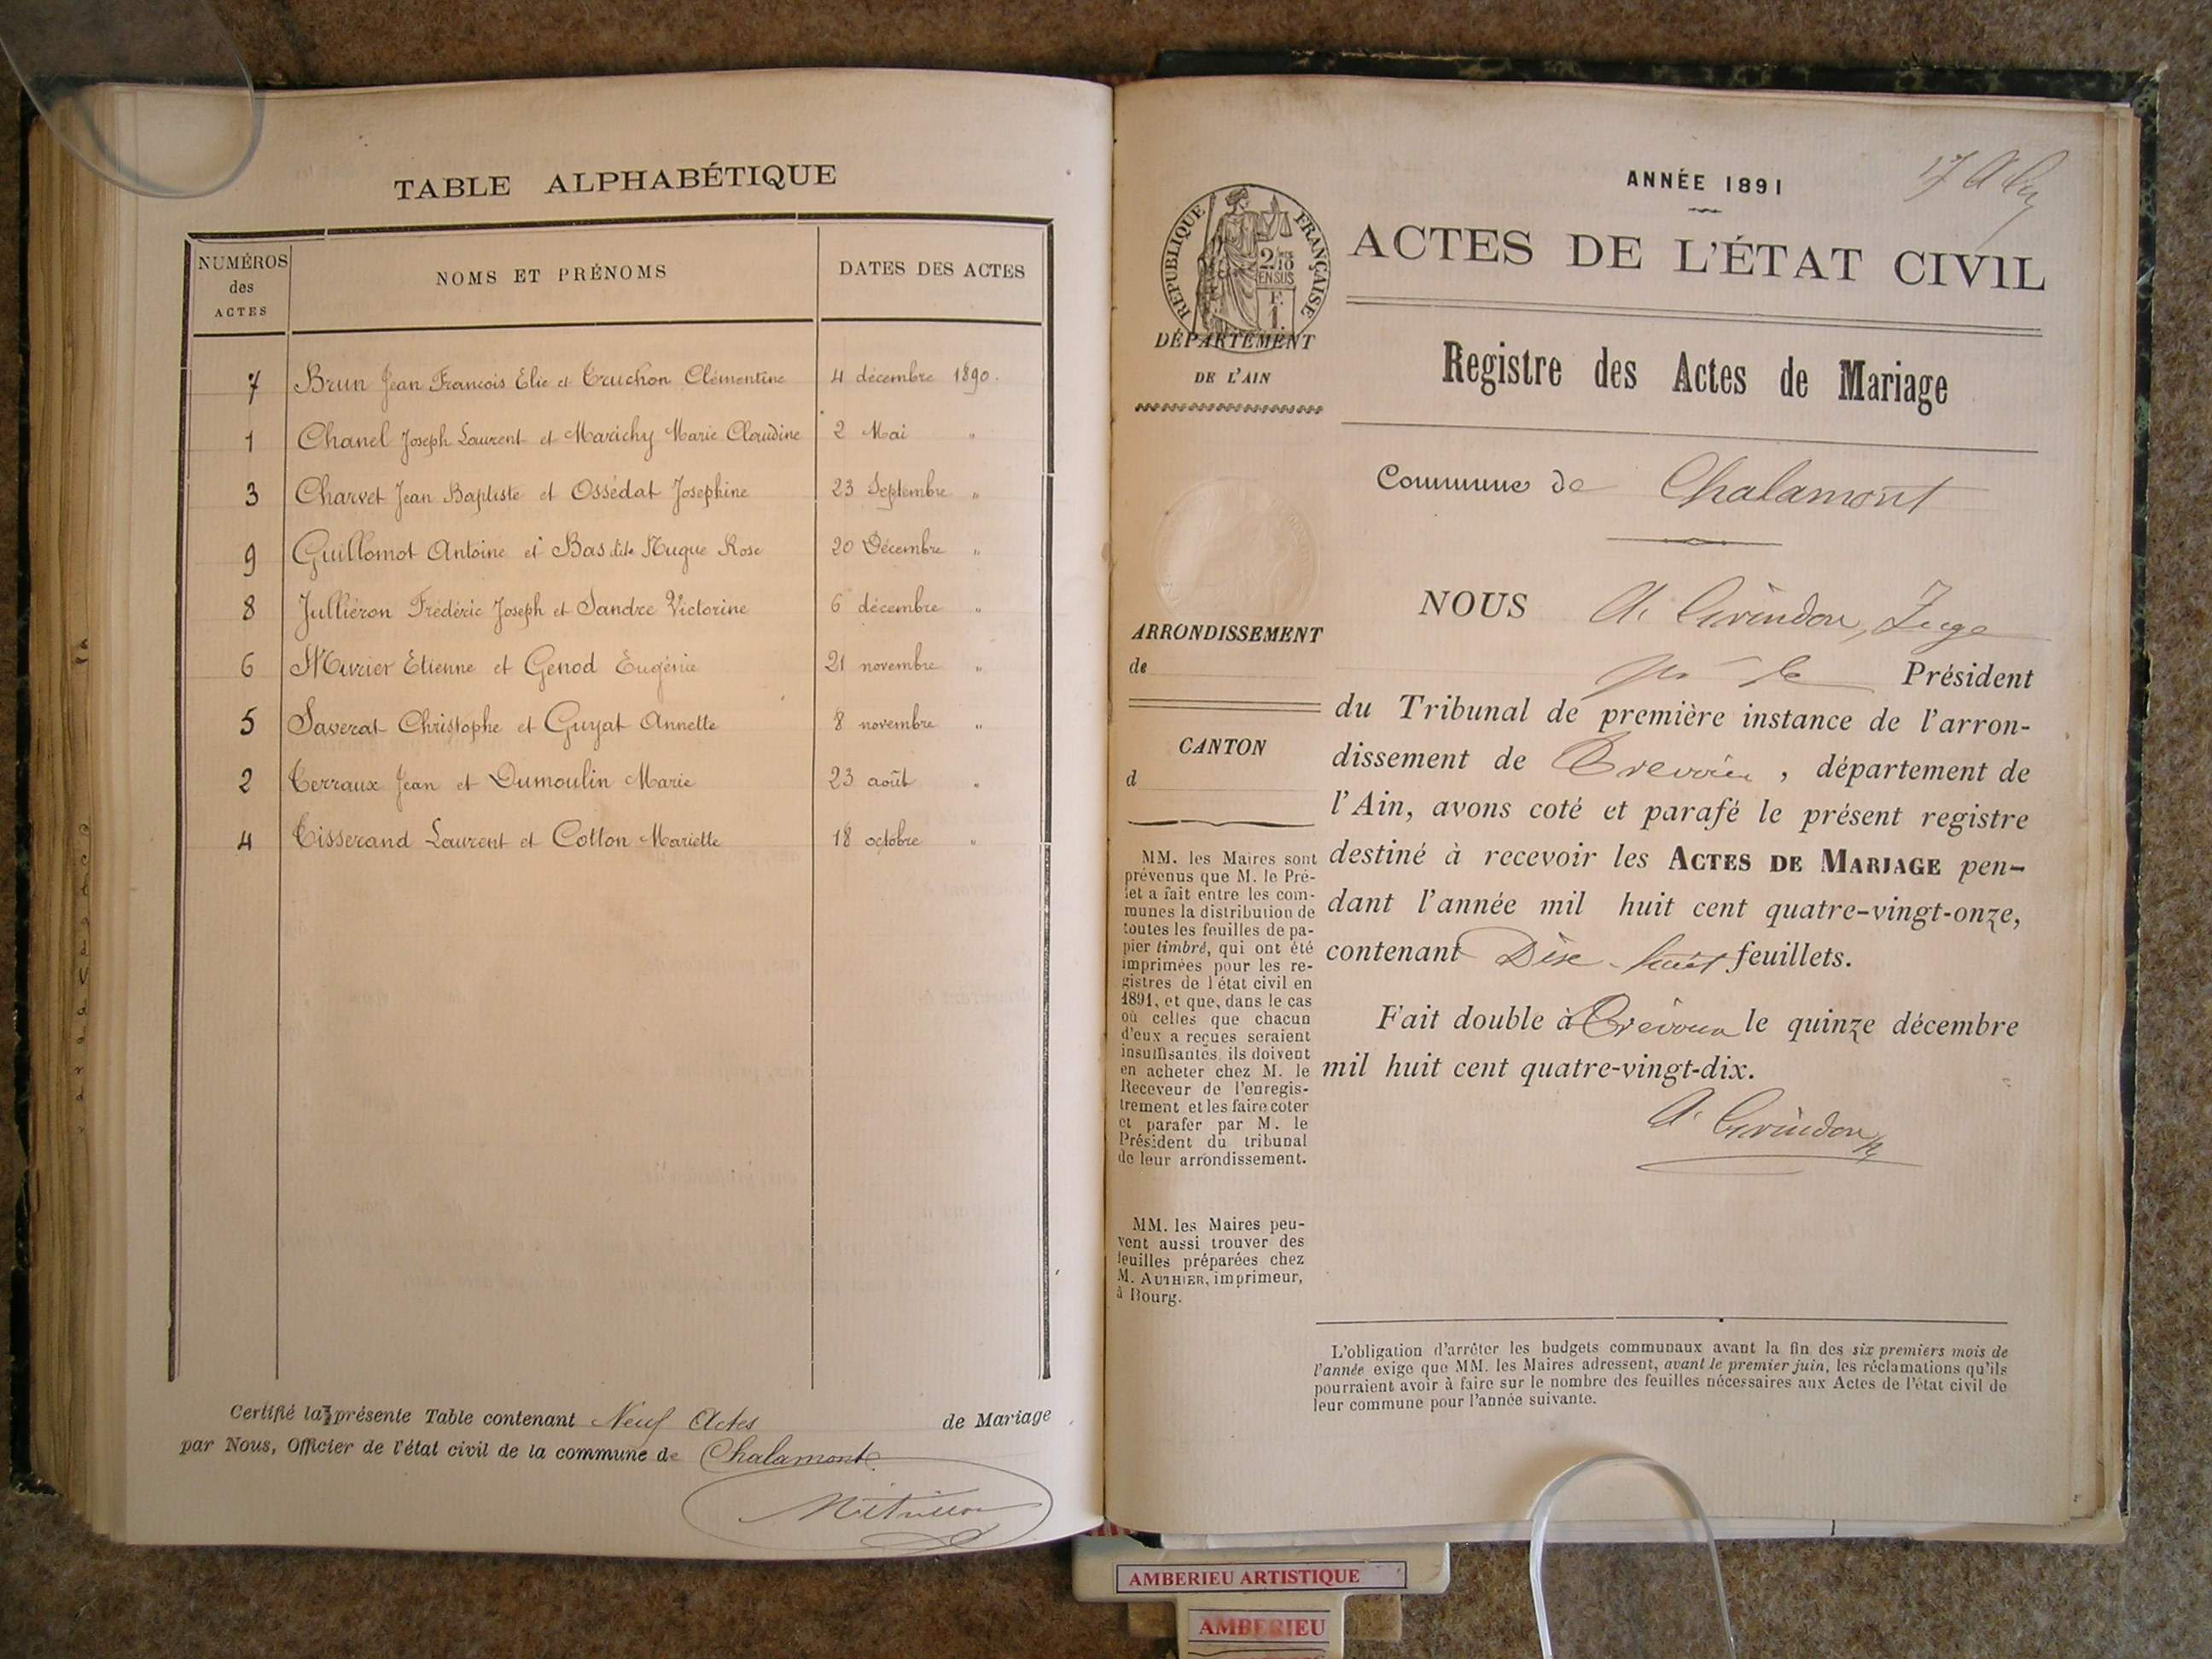 TABLE ALPHABÉTIQUE
NUMÉROS des ACTES
NOMS ET PRÉNOMS
DATES DES ACTES
7 Brun Jean François Elie et Truchon Clémentine 4 décembre 1890.
1 Chanel Joseph Laurent et Marichy Marie Claudine 2 Mai "
3 Charvet Jean Baptiste et Ossédat Josephine 23 Septembre "
9 Guillomot Antoine et Bas dite Nugue Rose 20 Décembre "
8 Julliéron Frédéric Joseph et Sandre Victorine 6 décembre "
6 Murier Etienne et Genod Eugénie 21 novembre "
5 Saverat Christophe et Guyat Annette 8 novembre "
2 Terraux Jean et Dumoulin Marie 23 août "
4 Tisserand Laurent et Cotton Mariette 18 octobre "
Certifié la présente Table contenant Neuf Actes de Mariage
par Nous, Officier de l'état civil de la commune de Chalamont.
ANNÉE 1891
RÉPUBLIQUE FRANÇAISE
2/10 EN SUS
F. 1.
ACTES DE L'ÉTAT CIVIL
DÉPARTEMENT
DE L'AIN
Registre des Actes de Mariage
Commune de Chalamont
ARRONDISSEMENT
de
CANTON
d
MM. les Maires sont
prévenus que M. le Pré-
fet a fait entre les com-
munes la distribution de
toutes les feuilles de pa-
pier timbré, qui ont été
imprimées pour les re-
gistres de l'état civil en
1891, et que, dans le cas
où celles que chacun
d'eux a reçues seraient
insuffisantes, ils doivent
en acheter chez M. le
Receveur de l'enregis-
trement et les faire coter
et parafer par M. le
Président du tribunal
de leur arrondissement.
MM. les Maires peu-
vent aussi trouver des
feuilles préparées chez
M. AUTHIER, imprimeur,
à Bourg.
NOUS A. Grindon, Juge
pr le Président
du Tribunal de première instance de l'arron-
dissement de Trévoux, département de
l'Ain, avons coté et parafé le présent registre
destiné à recevoir les ACTES DE MARIAGE pen-
dant l'année mil huit cent quatre-vingt-onze,
contenant Dix-huit feuillets.
Fait double à Trévoux le quinze décembre
mil huit cent quatre-vingt-dix.
A. Grindon
L'obligation d'arrêter les budgets communaux avant la fin des six premiers mois de
l'année exige que MM. les Maires adressent, avant le premier juin, les réclamations qu'ils
pourraient avoir à faire sur le nombre des feuilles nécessaires aux Actes de l'état civil de
leur commune pour l'année suivante.
AMBERIEU ARTISTIQUE
AMBERIEU